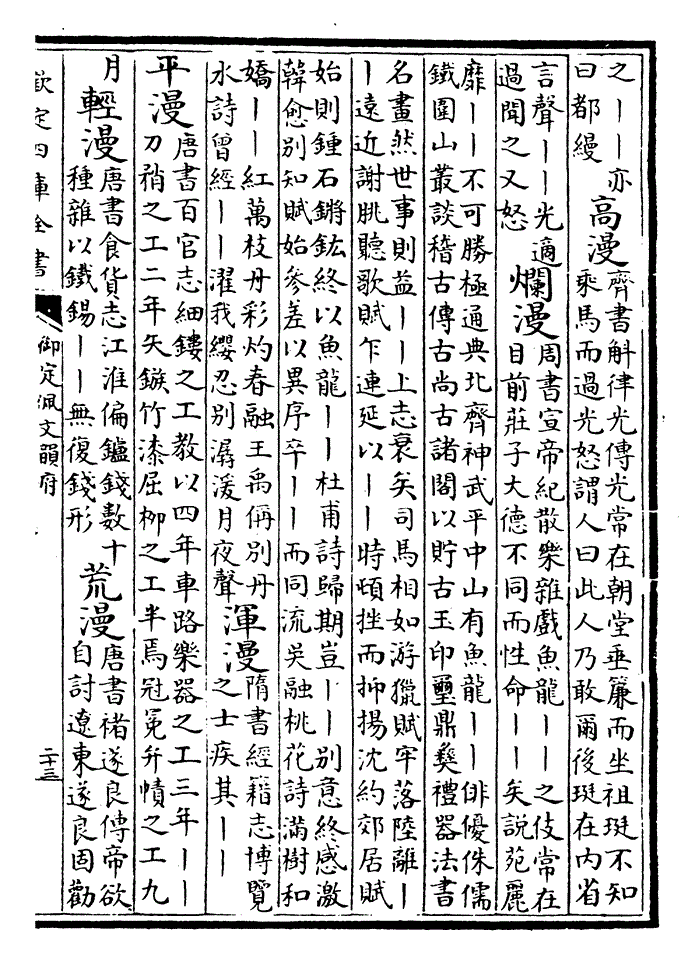 之丨丨亦
曰都縵
高漫
齊書斛律光傳光常在朝堂垂簾而坐祖珽不知
乘馬而過光怒謂人曰此人乃敢爾後珽在内省
言聲丨丨光適
過聞之又怒
爛漫
周書宣帝紀散樂雜戲魚龍丨丨之伎常在
目前莊子大德不同而性命丨丨矣說苑麗
靡丨丨不可勝極通典北齊神武平中山有魚龍丨丨俳優侏儒
鐵圍山叢談稽古傳古尚古諸閣以貯古玉印璽鼎彝禮器法書
名畫然世事則益丨丨上志衰矣司馬相如游獵賦牢落陸離丨
丨遠近謝朓聽歌賦乍連延以丨丨時頓挫而抑揚沈約郊居賦
始則鍾石鏘鈜終以魚龍丨丨杜甫詩歸期豈丨丨别意終感激
韓愈别知賦始參差以異序卒丨丨而同流吴融桃花詩滿樹和
嬌丨丨紅萬枝丹彩灼春融王禹偁别丹
水詩曾經丨丨濯我纓忍别潺湲月夜聲
渾漫
隋書經籍志博覽
之士疾其丨丨
平漫
唐書百官志細鏤之工教以四年車路樂器之工三年丨丨
刀矟之工二年矢鏃竹漆屈柳之工半焉冠冕弁幘之工九
月
輕漫
唐書食貨志江淮偏鑪錢數十
種雜以鐵錫丨丨無復錢形
荒漫
唐書褚遂良傳帝欲
自討遼東遂良固勸
欽定四庫全書
御定佩文韻府
二十三